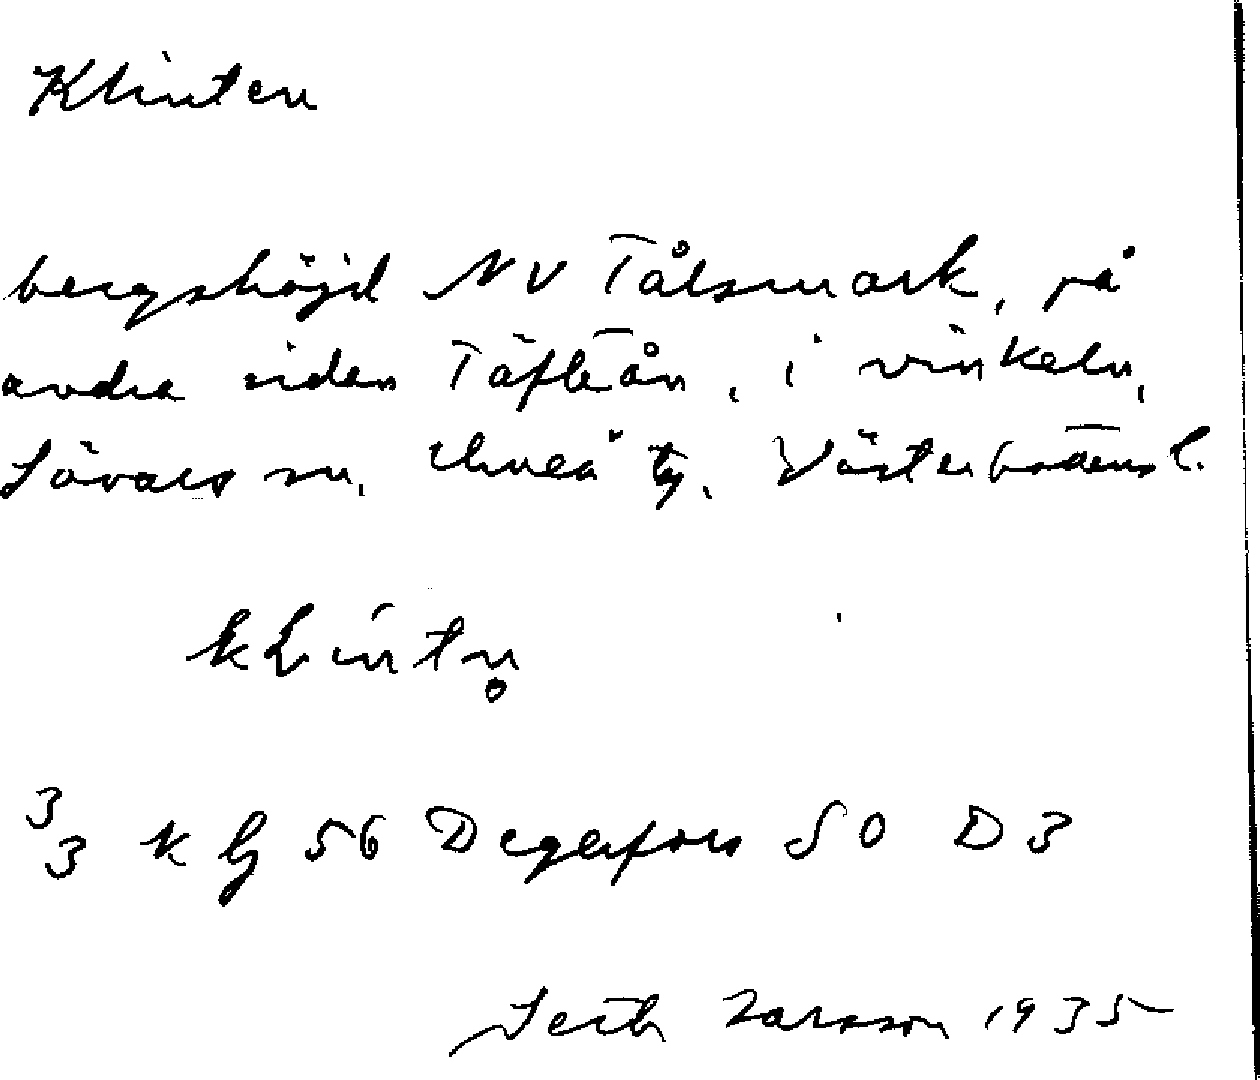 Klinten
bergshöjd NV Tålsmark, på
andra sidan Täfteån, i vinkeln,
Sävars sn, Umeå tg, Västerbottens l.
klintn̥
3/3 K G 56 Degerfors SO D3
Seth Larsson 1935